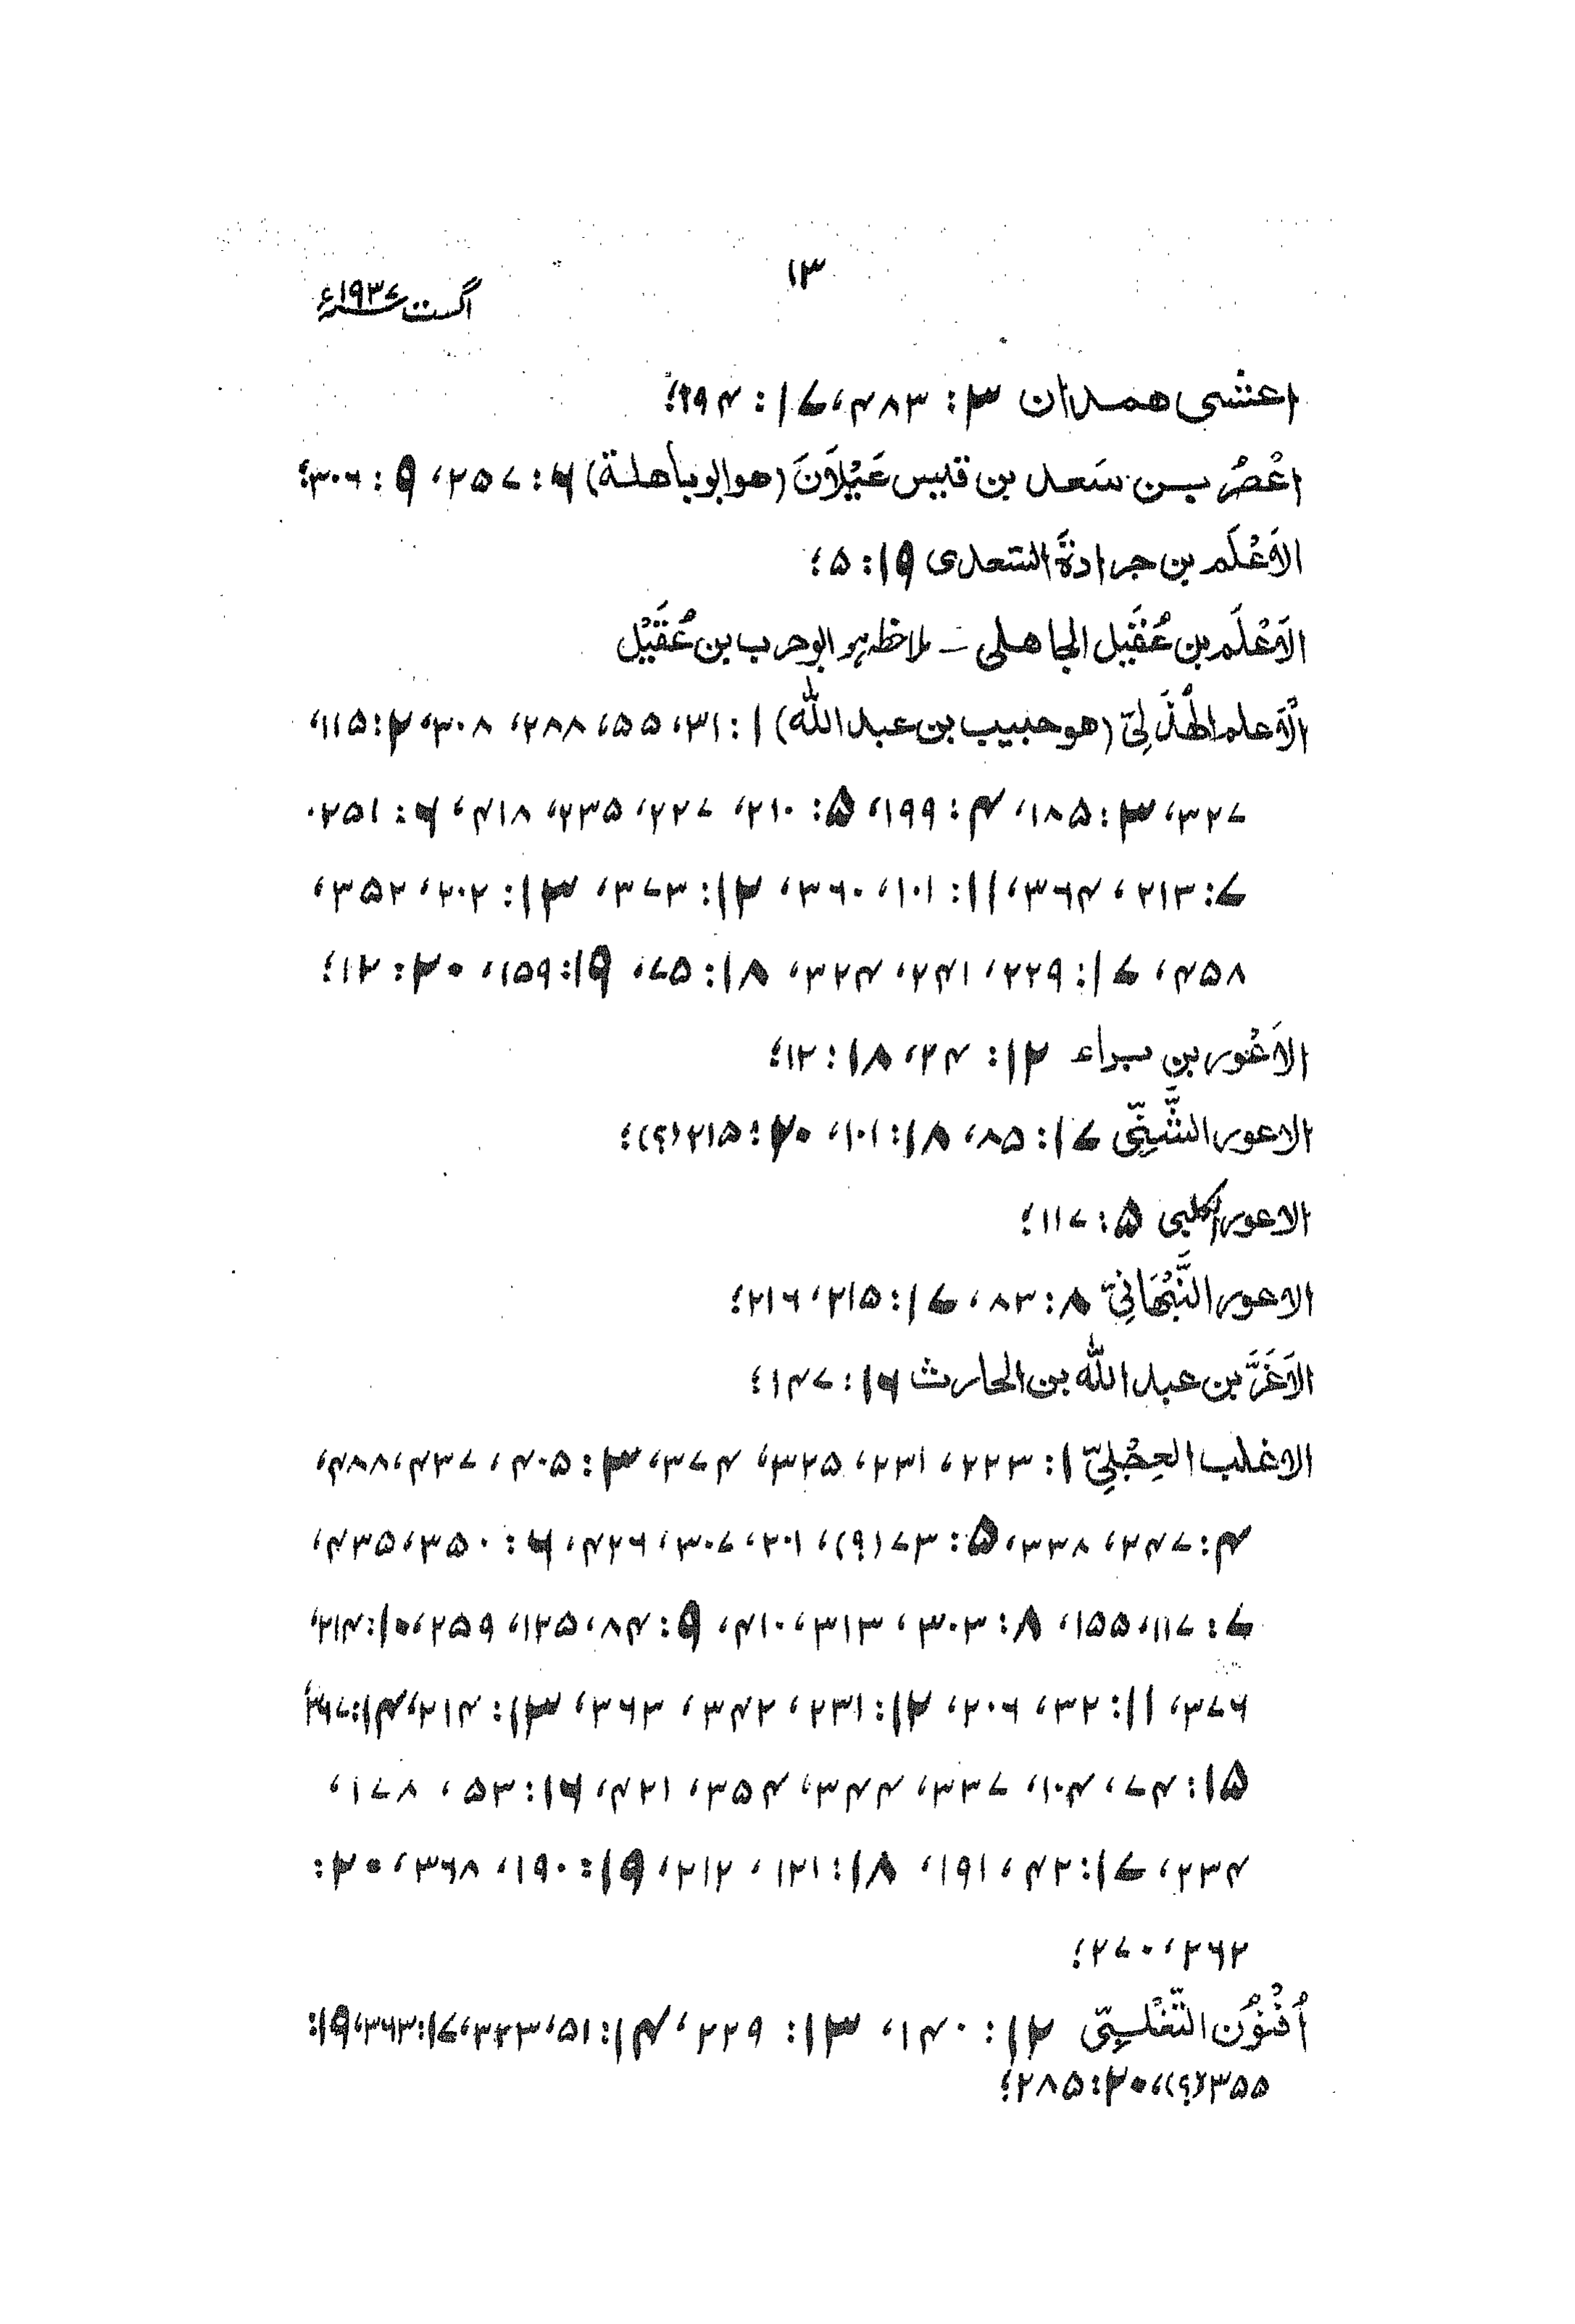 ۱۳
اگست ۱۹۳۷ء
اعشی همدان ۳: ۴۸۳، ۱۷: ۲۹۴؛
اعْصُر بن سَعد بن قیس عَیْلَانَ (هو ابو باهلة) ۶: ۲۵۷، ۹: ۳۰۶؛
الاَعْلَم بن جرادَةَ السّعدی ۱۹: ۵؛
الاَعْلَم بن عُقَیل الجاهلی – ملاحظہ ہو ابو حرب بن عُقَیْل
الْاَعلم الهُذَلِیّ (هو حبیب بن عبد اللّٰه) ۱: ۳۱، ۵۵، ۲۸۸، ۳۰۸، ۲: ۱۱۵،
۳۲۷، ۳: ۱۸۵، ۴: ۱۹۹، ۵: ۲۱۰، ۲۲۷، ۲۳۵، ۴۱۸، ۶: ۲۵۱،
۷: ۲۱۳، ۳۶۴، ۱۱: ۱۰۱، ۳۶۰، ۱۲: ۳۷۳، ۱۳: ۲۰۲، ۳۵۲،
۴۵۸، ۱۷: ۲۲۹، ۲۴۱، ۳۲۴، ۱۸: ۷۵، ۱۹: ۱۵۹، ۲۰: ۱۲؛
الاَعْور بن براء ۱۲: ۲۴، ۱۸: ۱۲؛
الاعور الشَّنِّی ۱۷: ۸۵، ۱۸: ۱۰۱، ۲۰: ۲۱۵(؟)؛
الاعور الکلبی ۵: ۱۱۷؛
الاعور النَّبْهَانِیّ ۸: ۸۳، ۱۷: ۲۱۵، ۲۱۶؛
الاَغَرَّ بن عبد اللّٰه بن الحارث ۱۶: ۱۴۷؛
الاغلب العِجْلِیّ ۱: ۲۲۳، ۲۳۱، ۳۲۵، ۳۷۴، ۳: ۴۰۵، ۴۳۷، ۴۸۸،
۴: ۲۴۷، ۳۳۸، ۵: ۷۳(؟)، ۲۰۱، ۳۰۷، ۴۲۶، ۶: ۳۵۰، ۴۳۵،
۷: ۱۱۷، ۱۵۵، ۸: ۳۰۳، ۳۱۳، ۴۱۰، ۹: ۸۴، ۱۲۵، ۲۵۹، ۱۰: ۲۱۴،
۳۷۶، ۱۱: ۳۲، ۲۰۶، ۱۲: ۲۳۱، ۳۴۲، ۳۶۳، ۱۳: ۲۱۴، ۱۴:
۱۵: ۷۴، ۱۰۴، ۳۳۷، ۳۴۴، ۳۵۴، ۴۲۱، ۱۶: ۵۳، ۱۷۸،
۲۳۴، ۱۷: ۴۲، ۱۹۱، ۱۸: ۱۲۱، ۲۱۲، ۱۹: ۱۹۰، ۳۶۸، ۲۰:
۲۶۲، ۲۷۰؛
اُفْنُوْن التَّغْلَبِیّ ۱۲: ۱۴۰، ۱۳: ۲۲۹، ۱۴: ۵۱، ۱۷: ۳۶۳، ۱۹:
۳۵۵(؟)، ۲۰: ۲۸۵؛